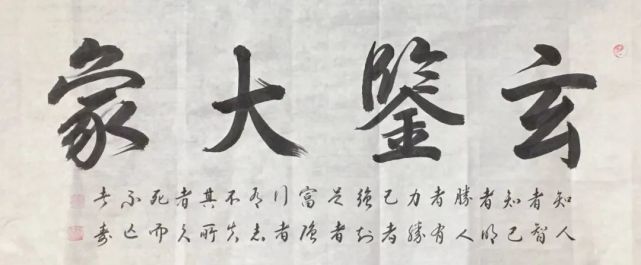 玄鑒大象
知人
者智
知己
者明
勝人
者有
力勝
己者
強知
足者
富強
行者
有志
不失
其所
者久
死而
不亡
者壽